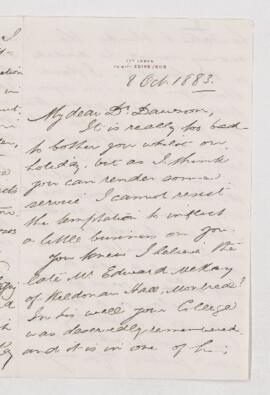 EDINBURGH
8 Oct. 1883.
My dear Dr. Dawson,
It is really too bad
to bother you whilst on
holiday, but as I think
you can render some
service I cannot resist
the temptation to inflict
a little business on you.
You knew I believe the
late Mr. Edward McKay
of Kildonan Hall, Montreal?
In his will your College
was deservedly remembered
and it is in one of his